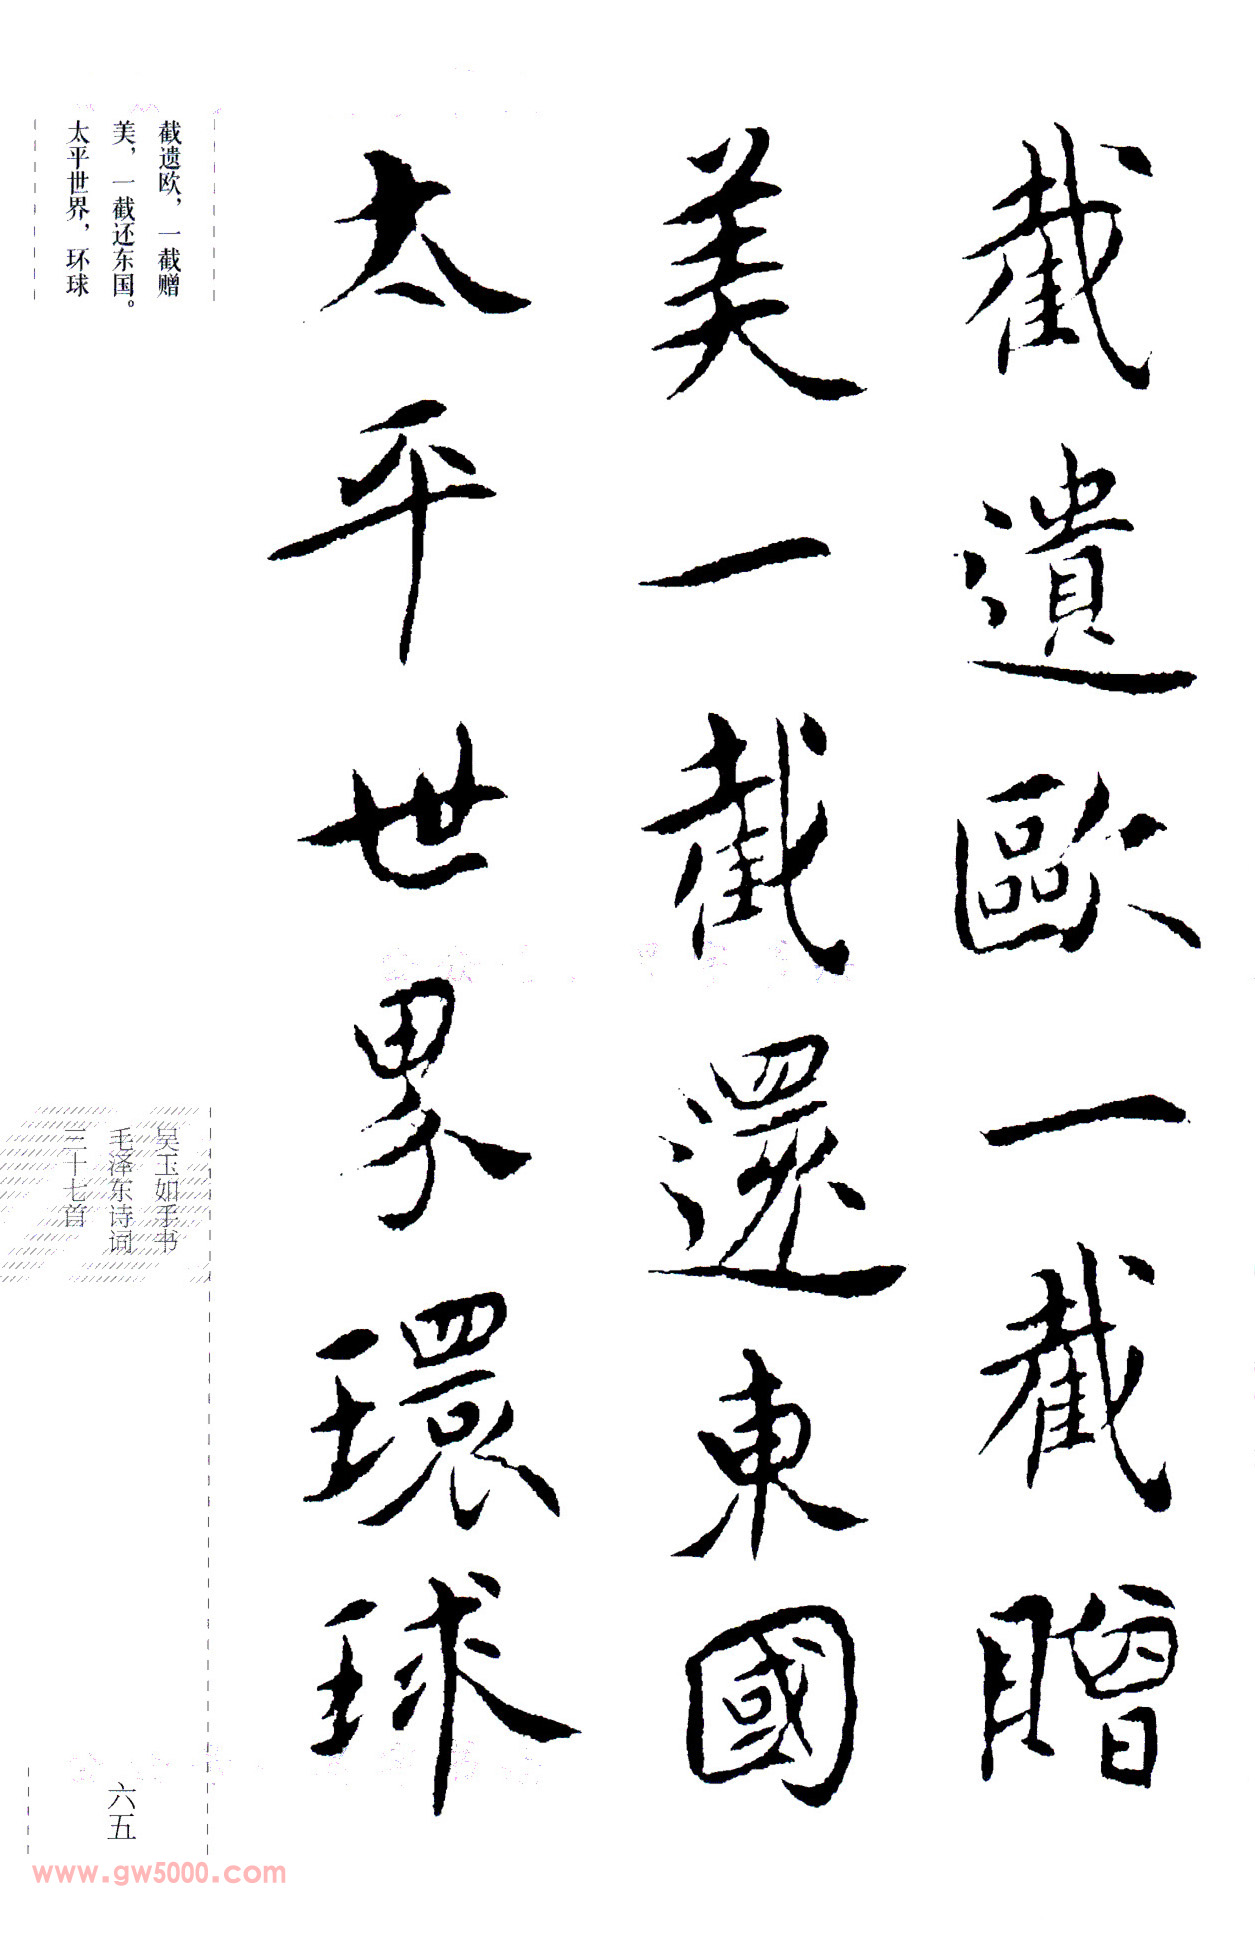 截遺歐一截贈
美一截還東國
太平世界環球
截遗欧，一截赠
美，一截还东国。
太平世界，环球
吴玉如手书
毛泽东诗词
三十七首
六五
www.gw5000.com